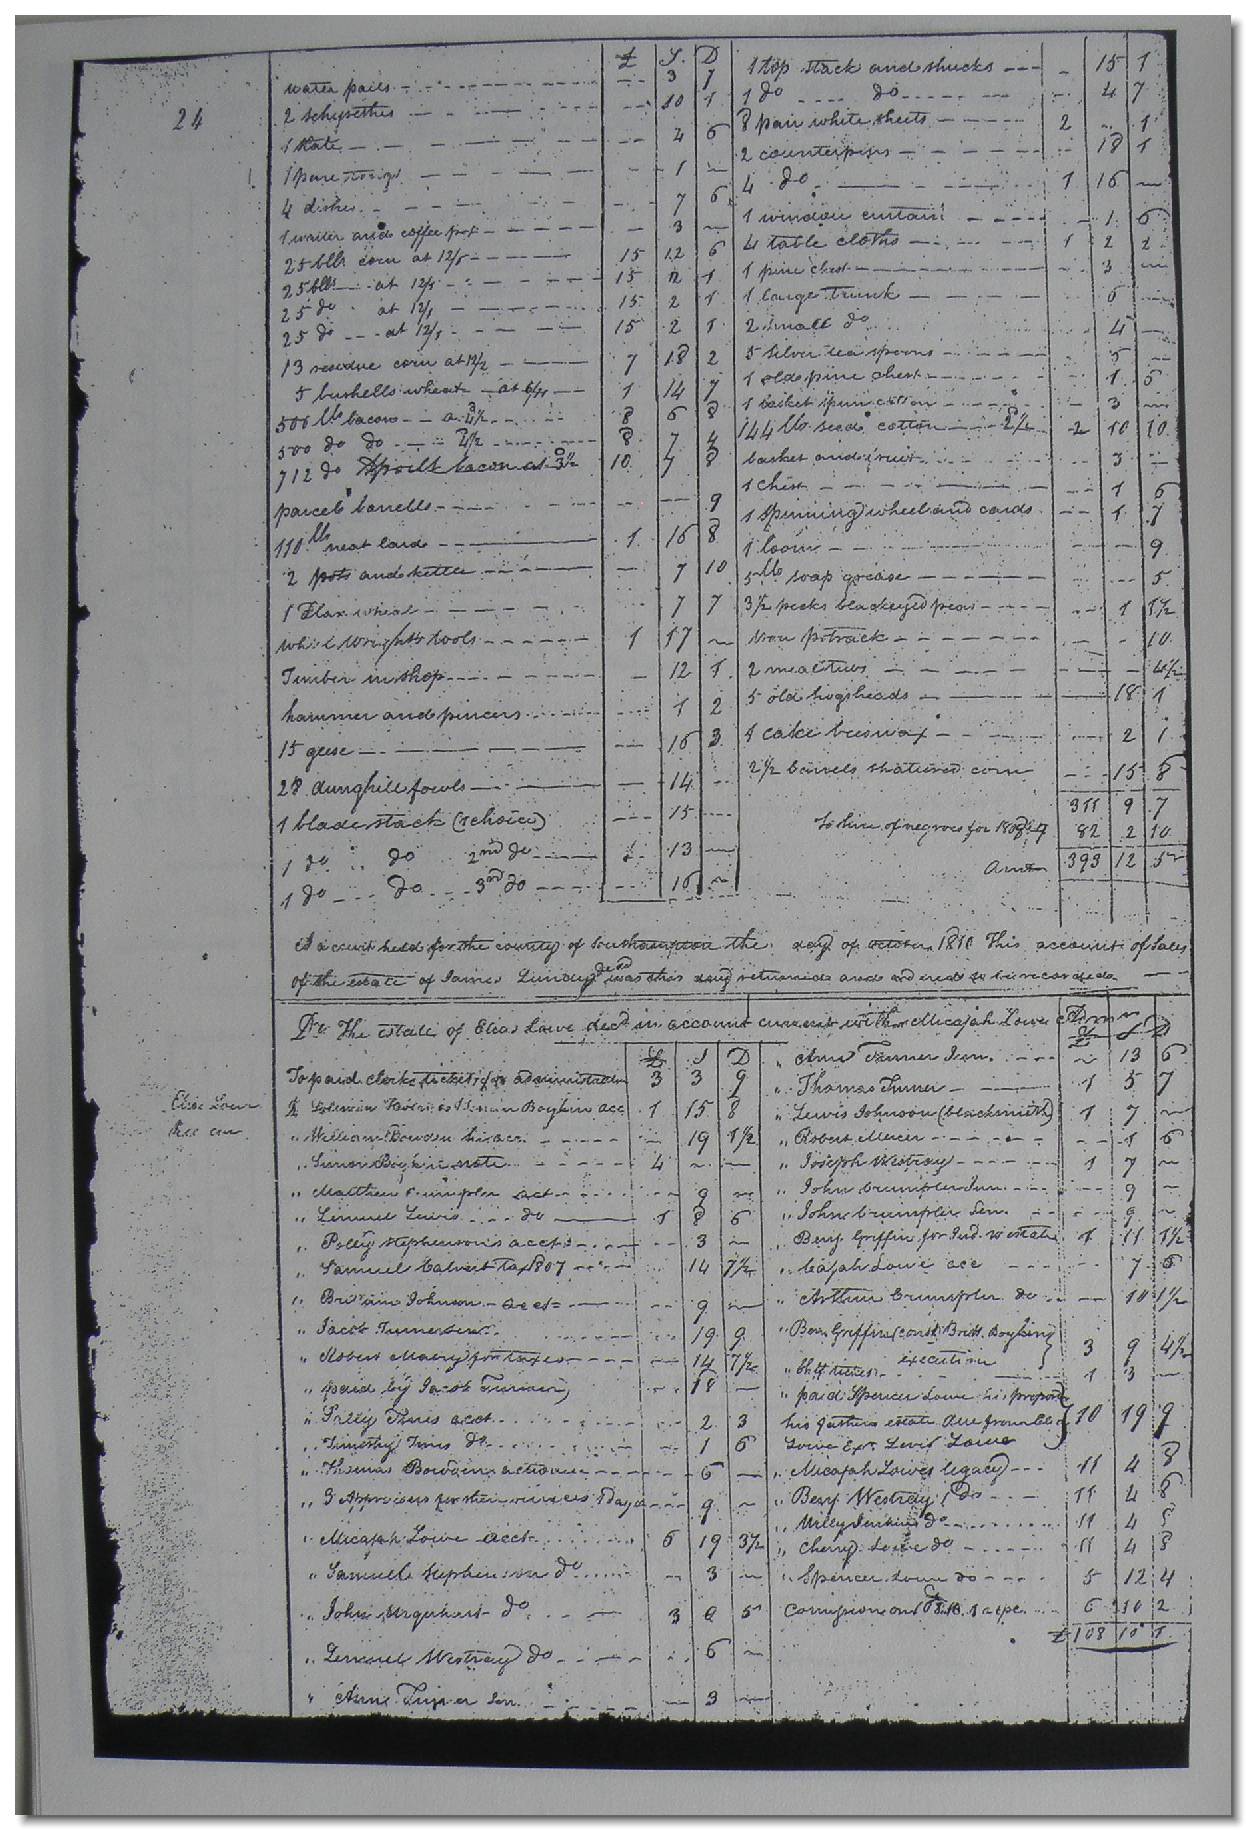 24
£ S. D
water pails 3 7
2 schysethes 10 1
1 4 6
1 1 ~
4 dishes 7 6
1 waiter and coffee pot 3 ~
25 blls corn at 12/5 15 12 6
25 blls at 12/1 15 2 1
25 do at 12/1 15 2 1
25 do at 12/1 15 2 1
13 residue corn at 12/2 7 18 2
5 bushells wheat at 1 14 7
500 lb bacon a 4½ 8 6 8
500 do do 4½ 8 7 4
712 do Spoilt bacon at 3½ 10 7 8
parcel barrells 9
110 lb neat lard 1 16 8
2 pots and kettle 7 10
1 Flax wheel 7 7
wheel wrights tools 1 17 ~
Timber in shop 12 1
hammer and pincers 1 2
15 geese 16 3
28 dunghill fowls 14
1 blade stack (1 choice) 15
1 do do 2nd do 13
1 do do 3rd do 16 ~
1 top stack and shucks 15 1
1 do do 4 7
8 pair white sheets 2 1
2 counterpins 18 1
4 do 1 16 ~
1 window curtain 1 6
4 table cloths 1 2 2
1 pine chest 3 ~
1 large trunk 6
2 small do 4
5 silver tea spoons 5
1 old pine chest 1 6
1 basket spun cotton 3 ~
144 lb seed cotton 2½ 2 10 10
basket and 3
1 chest 1 6
1 spinning wheel and cards 1 7
1 loom 9
5 lb soap grease 5
3½ pecks blackeyed peas 1 1½
Iron potrack 10
2 meal tubs 4½
5 old hogsheads 18 1
1 cake beeswax 2 1
2½ barrels shattered corn 15 6
311 9 7
To hire of negroes for 82 2 10
Amt 393 12 5
At a court held for the county of Southampton the day of october 1810 This account of Sales
of the estate of James Lundy decd was this day returned and ordered to be recorded
Dr The estate of Elias Lowe decd in account current with Micajah Lowe Admr
Elias Lowe
£ S D
To paid clerks tickets for administration 3 3 9
Boykin acc 1 15 8
" William Bowden his acc 19 1½
" Simon Boykin note 4 ~
" Matthew Crumpler act 9 ~
" Lemuel Lewis do 1 8 6
" Polley Stephenson's acct 3 ~
" Samuel Calvert tax 1807 14 7½
" Britain Johnson acct 9 ~
" Jacob Turner 19 9
" Robert for taxes 14 7½
" paid by Jacob Turner 18
" acct 2 3
" Timothy do 1 6
" Thomas Bowden 6
" 3 Apprisers for their services 1 day 9 ~
" Micajah Lowe acct 6 19 3½
" Samuel Stephenson do 3 ~
" John Urquhart do 3 0 5
" Lemuel Westray do 6 ~
" Ann Turner Sen. 3
£ S D
" Ann Turner Sen. 13 6
" Thomas Turner 1 5 7
" Lewis Johnson (blacksmith) 1 7 ~
" Robert Mercer 1 6
" Joseph Westray 1 7 ~
" John Crumpler Jun. 9 ~
" John Crumpler Sen. 9 ~
" Benj Griffin for estate 1 11 1½
" Cajah Lowe acc 7 6
" Arthur Crumpler do 10 1½
" Ben Griffin (const) Britt. Boykins
execution 3 9 4½
" 1 3
" paid Spencer Lowe his
his fathers estate due from
Lowe Exr. Lewis Lowe 10 19 9
" Micajah Lowes legacy 11 4 8
" Benj Westray do 11 4 8
" Willy Jenkins do 11 4 8
" Cherry Lowe do 11 4 8
" Spencer Lowe do 5 12 4
6 10 2
£ 108 10 1